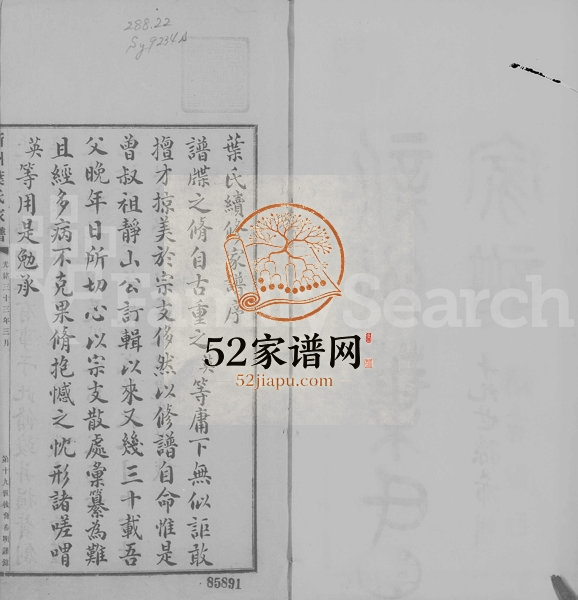 288.22
Sy9234A
葉氏續修家譜序
譜牒之脩自古重之英等庸下無似詎敢
擅才掠美於宗支侈然以修譜自命惟是
曾叔祖靜山公訂輯以來又幾三十載吾
父晚年日所切心以宗支散處彙纂為難
且經多病不克果脩抱憾之忱形諸嗟喟
英等用是勉承
葉氏家譜
光緒三十三年三月
85891
FamilySearch
52家谱网
52jiapu.com